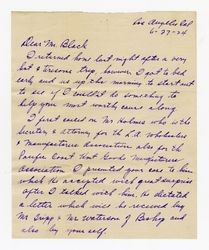 Los Angeles Cal
6-27-24
Dear Mr. Black
I returned home last night after a very
hot & tiresome trip, however I got to bed
early and is up this morning to start out
to see if I couldn't do something to
help your most worthy cause along
I first called on Mr Holmes who is the
Secretary & attorney for the L.A. Wholesalers
& Manufacture Association also for the
Pacific Coast Goods Manufacture
Association I presented your case to him
which he accepted with good
after I talked with him, he dictated
a letter which will be received by
Mr & Mr Watterson of Bishop and
also by your self.